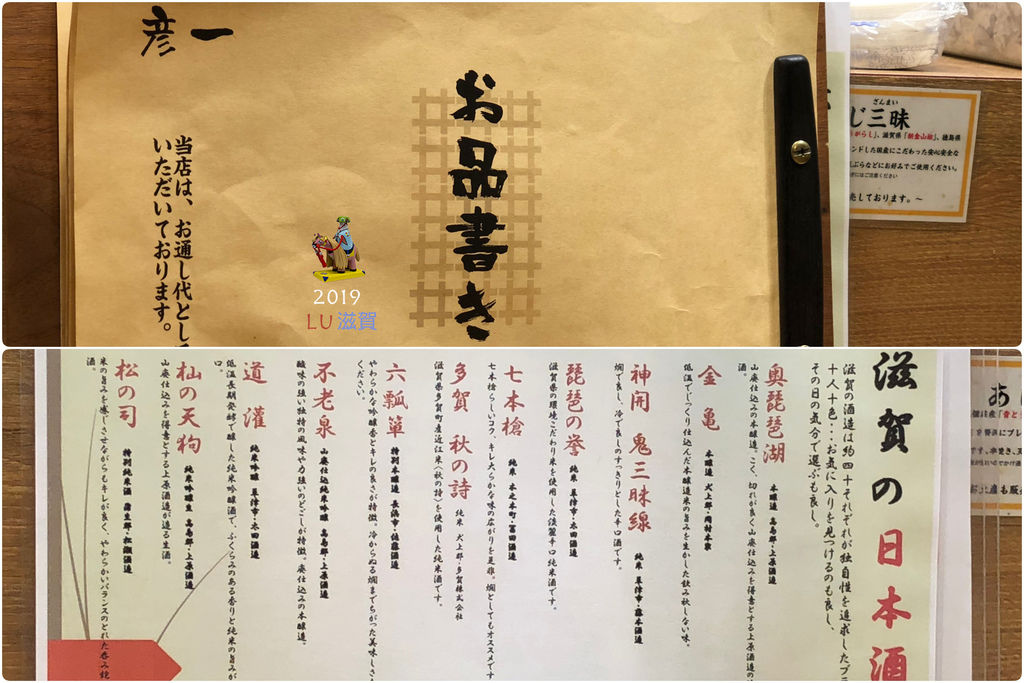 彦一
お品書き
当店は、お通し代とし
いただいております。
2019
LU 滋賀
ざんまい
じ三昧
がらし」、滋賀県「朝宮山椒」、徳島県
ンドした国産にこだわった安心安全な
ぷらなどにお好みでご使用ください。
売しております。~
滋賀の日本酒
滋賀の酒造は約四十それぞれが独自性を追求したブラ
十人十色・・・お気に入りを見つけるのも良し、
その日の気分で選ぶも良し。
奥琵琶湖
本醸造 高島郡・上原酒造
山廃仕込みの本醸造。こく、切れが良く山廃仕込みを得意とする上原酒造の
酒。
金亀
本醸造 犬上郡・岡村本家
低温でじっくり仕込んだ本醸造米の旨みを生かした飲み飽しない味。
神開 鬼三昧線
純米 草津市・藤本酒造
燗で良し、冷で良しのすっきりとした辛口酒です。
琵琶の誉
純米 草津市・太田酒造
滋賀県の環境こだわり米を使用した淡麗辛口純米酒です。
七本槍
純米 木之本町・冨田酒造
七本槍らしいコク、キレ大らかな味の広がりを是非。燗としてもオススメです
多賀 秋の詩
純米 犬上郡・多賀株式会社
滋賀県多賀町産近江米〈秋の詩〉を使用した純米酒です。
六瓢箪
特別本醸造 長浜市・佐藤酒造
やわらかな吟醸香とキレの良さが特徴。冷からぬる燗までちがった美味しさ
ください。
不老泉
山廃仕込純米吟醸 高島郡・上原酒造
酸味の強い独特の風味や力強いのどごしが特徴。山廃仕込みの本醸造。
道灌
純米吟醸 草津市・太田酒造
低温長期発酵で醸した純米吟醸酒で、ふくらみのある香りと純米の旨みが
口。
杣の天狗
純米吟醸生 高島郡・上原酒造
山廃仕込みを得意とする上原酒造が造る生酒。
松の司
特別純米酒 蒲生郡・松瀬酒造
米の旨みを感じさせながらもキレが良く、やわらかいバランスのとれた呑み飽
酒。